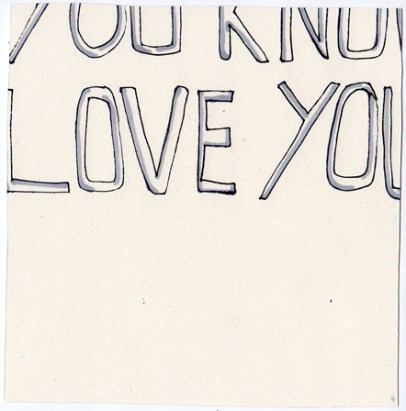 YOU KNO
LOVE YOU